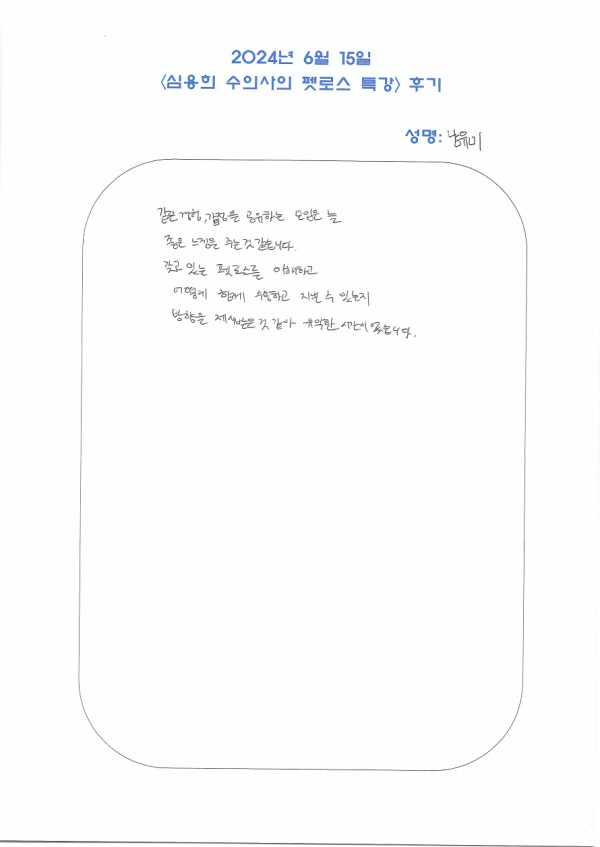 2024년 6월 15일
<심용희 수의사의 펫로스 특강> 후기
성명: 남유미
같은 경험, 감정을 공유하는 모임은 늘
좋은 느낌을 주는것 같습니다.
갖고 있는 펫로스를 이해하고
어떻게 함께 수용하고 지낼 수 있는지
방향을 제시받은것 같아 유익한 시간이었습니다.